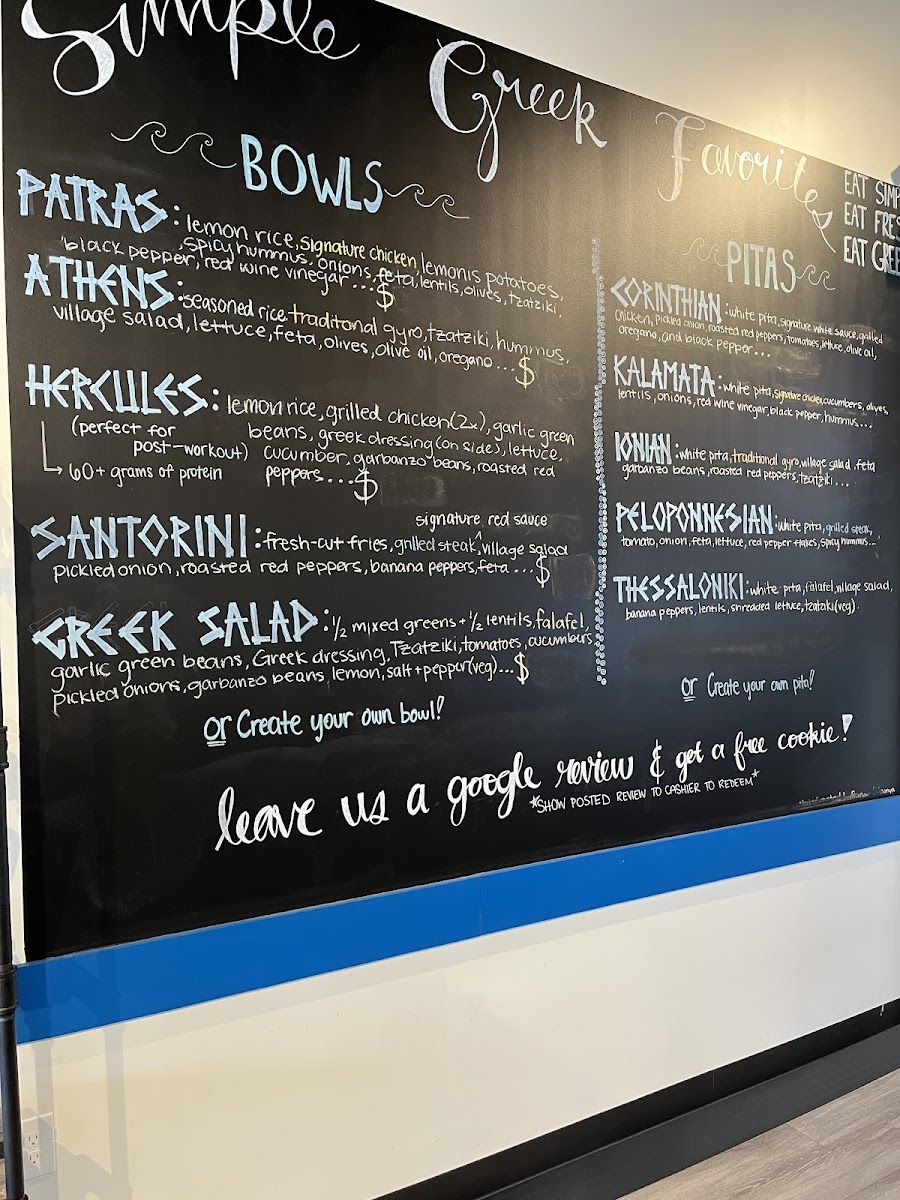 Simple Greek Favorites
BOWLS
PATRAS: lemon rice, signature chicken, lemonis potatoes,
spicy hummus, onions, feta, lentils, olives, tzatziki,
black pepper, red wine vinegar ... $
ATHENS: seasoned rice, traditional gyro, tzatziki, hummus,
village salad, lettuce, feta, olives, olive oil, oregano ... $
HERCULES: lemon rice, grilled chicken (2x), garlic green
(perfect for
beans, greek dressing (on side), lettuce,
post-workout)
cucumber, garbanzo beans, roasted red
60+ grams of protein
peppers... $
signature red sauce
SANTORINI: fresh-cut fries, grilled steak, village salad
pickled onion, roasted red peppers, banana peppers, feta ... $
GREEK SALAD: 1/2 mixed greens + 1/2 lentils, falafel,
garlic green beans, Greek dressing, Tzatziki, tomatoes, cucumbers
pickled onions, garbanzo beans, lemon, salt + pepper (veg)... $
or Create your own bowl!
EAT
EAT
EAT
PITAS
CORINTHIAN: white pita, signature white sauce, grilled
chicken, pickled onion, roasted red peppers, tomatoes, lettuce, olive oil,
oregano, and black pepper...
KALAMATA: white pita, signature chicken, cucumbers, olives,
lentils, onions, red wine vinegar, black pepper, hummus...
IONIAN: white pita, traditional gyro, village salad, feta
garbanzo beans, roasted red peppers, tzatziki....
PELOPONNESIAN: white pita, grilled steak,
tomato, onion, feta, lettuce, red pepper flakes, spicy hummus...
THESSALONIKI: white pita, falafel, village salad,
banana peppers, lentils, shredded lettuce, tzatziki (veg)
or Create your own pita!
leave us a google review & get a free cookie!
*SHOW POSTED REVIEW TO CASHIER TO REDEEM*